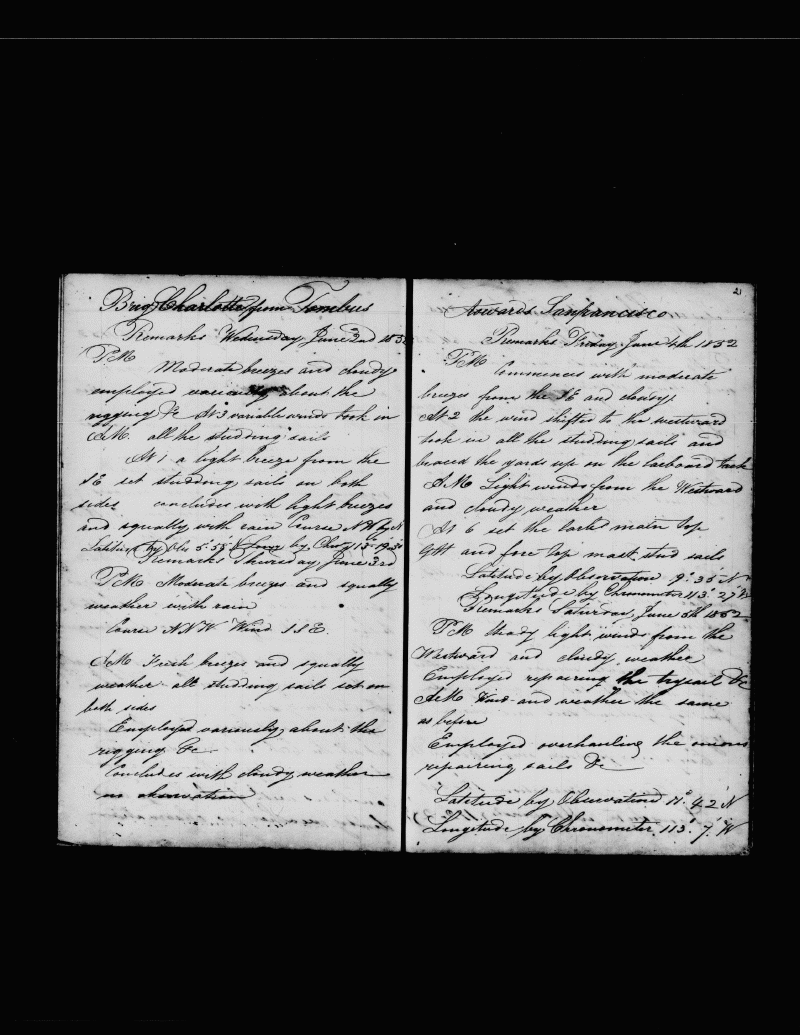 Brig Charlotte from Tombes
Remarks Wednesday June 2nd 1852
PM
Moderate breezes and cloudy
employed variously about the
rigging &c At 3 variable winds took in
AM all the studding sails
At 1 a light breeze from the
SE set studding sails on both
sides concludes with light breezes
and squally with rain Course NW by N
Latitude by Obs 5°.55 & Long by Chro 113°.19
Remarks Thursday, June 3rd
PM Moderate breezes and squally
weather with rain
Course NNW Wind SSE.
AM Fresh breezes and squally
weather all studding sails set on
both sides
Employed variously about the
rigging &c
Concludes with cloudy weather
no observation
2
towards Sanfrancisco
Remarks Friday June 4th 1852
PM
Commences with moderate
breezes from the SE and cloudy
At 2 the wind shifted to the westward
took in all the studding sails and
braced the yards up on the larboard tack
AM Light winds from the Westward
and cloudy weather
At 6 set the larbd main top
gllt and fore top mast stud sails
Latitude by Observation 9°.35 N
Longitude by Chronometer 113°.27 W
Remarks Saturday, June 5th 1852
PM Steady light winds from the
Westward and cloudy weather
Employed repairing the trysail &c
AM Wind and weather the same
as before
Employed overhauling the
repairing sails &c
Latitude by Observation 11°.42 N
Longitude by Chronometer 113°.7 W